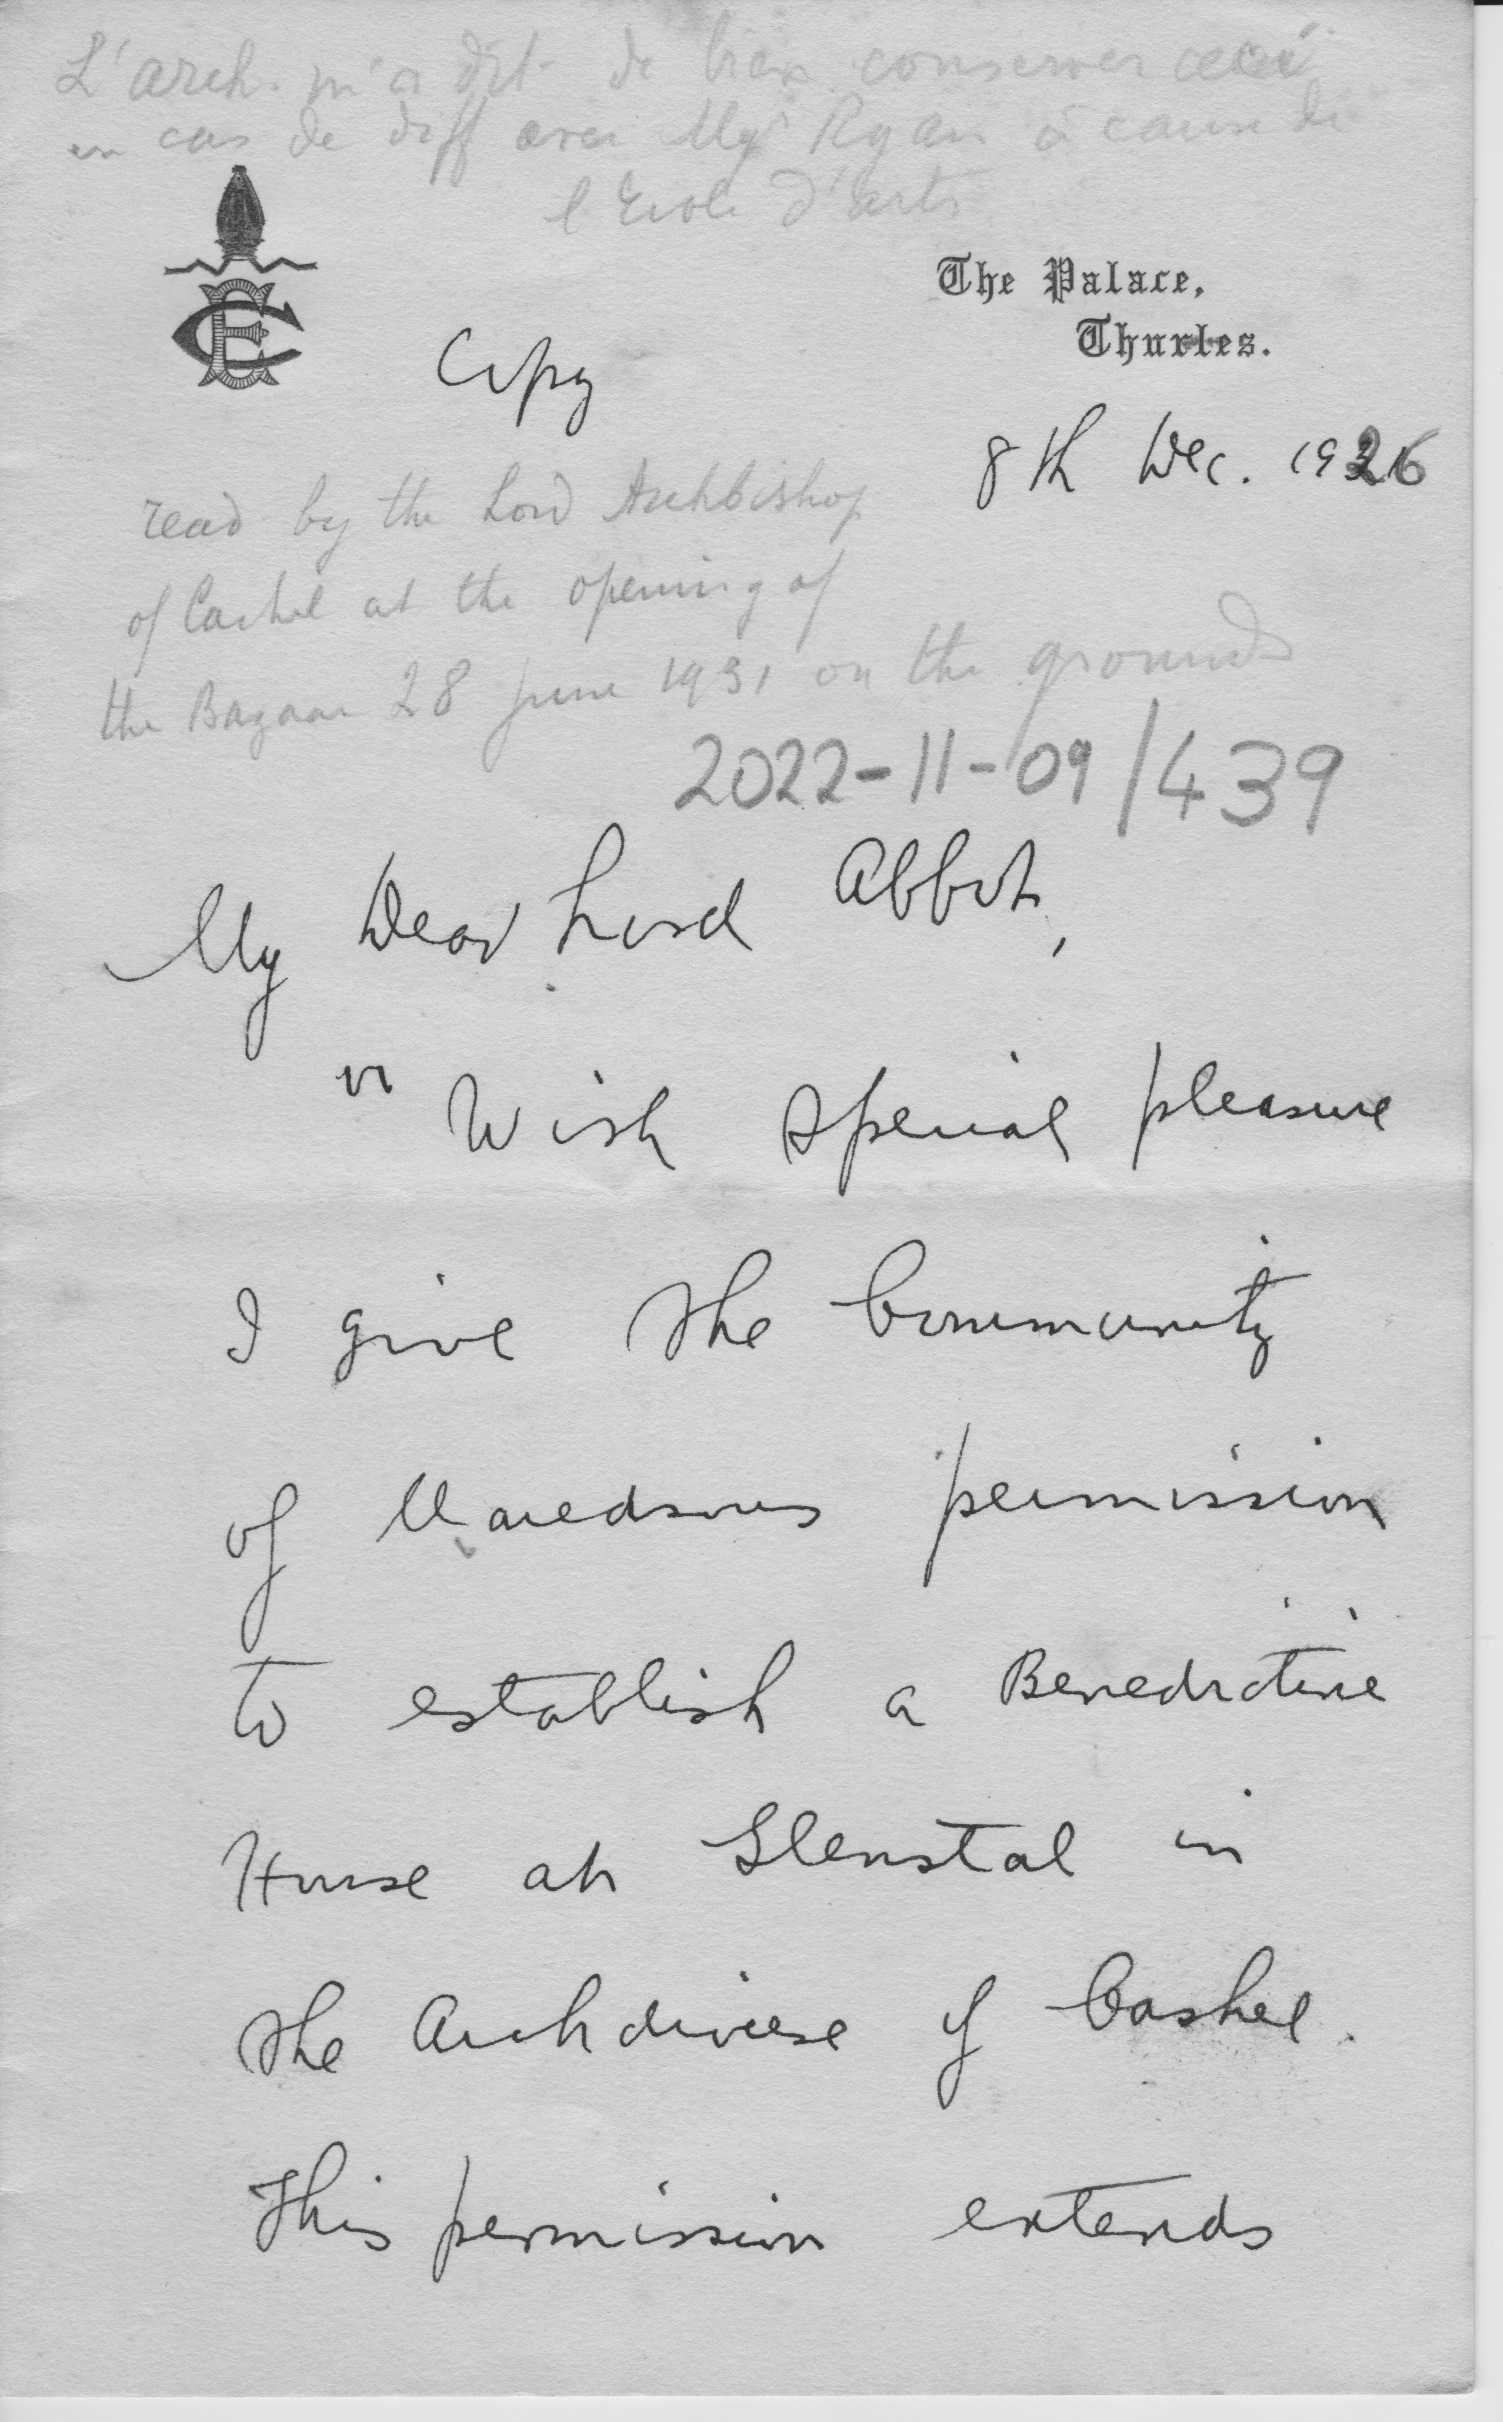 L'arch. m'a dit de bien conserver ceci
en cas de diff avec Mgr Ryan à cause de
l'Ecole d'arts
The Palace,
Thurles.
Copy
8th Dec. 1926
read by the Lord Archbishop
of Cashel at the opening of
the Bazaar 28 June 1931 on the grounds
2022-11-09/439
My Dear Lord Abbot,
" With special pleasure
I give the Community
of Maredsous permission
to establish a Benedictine
House at Glenstal in
the Archdiocese of Cashel.
This permission extends